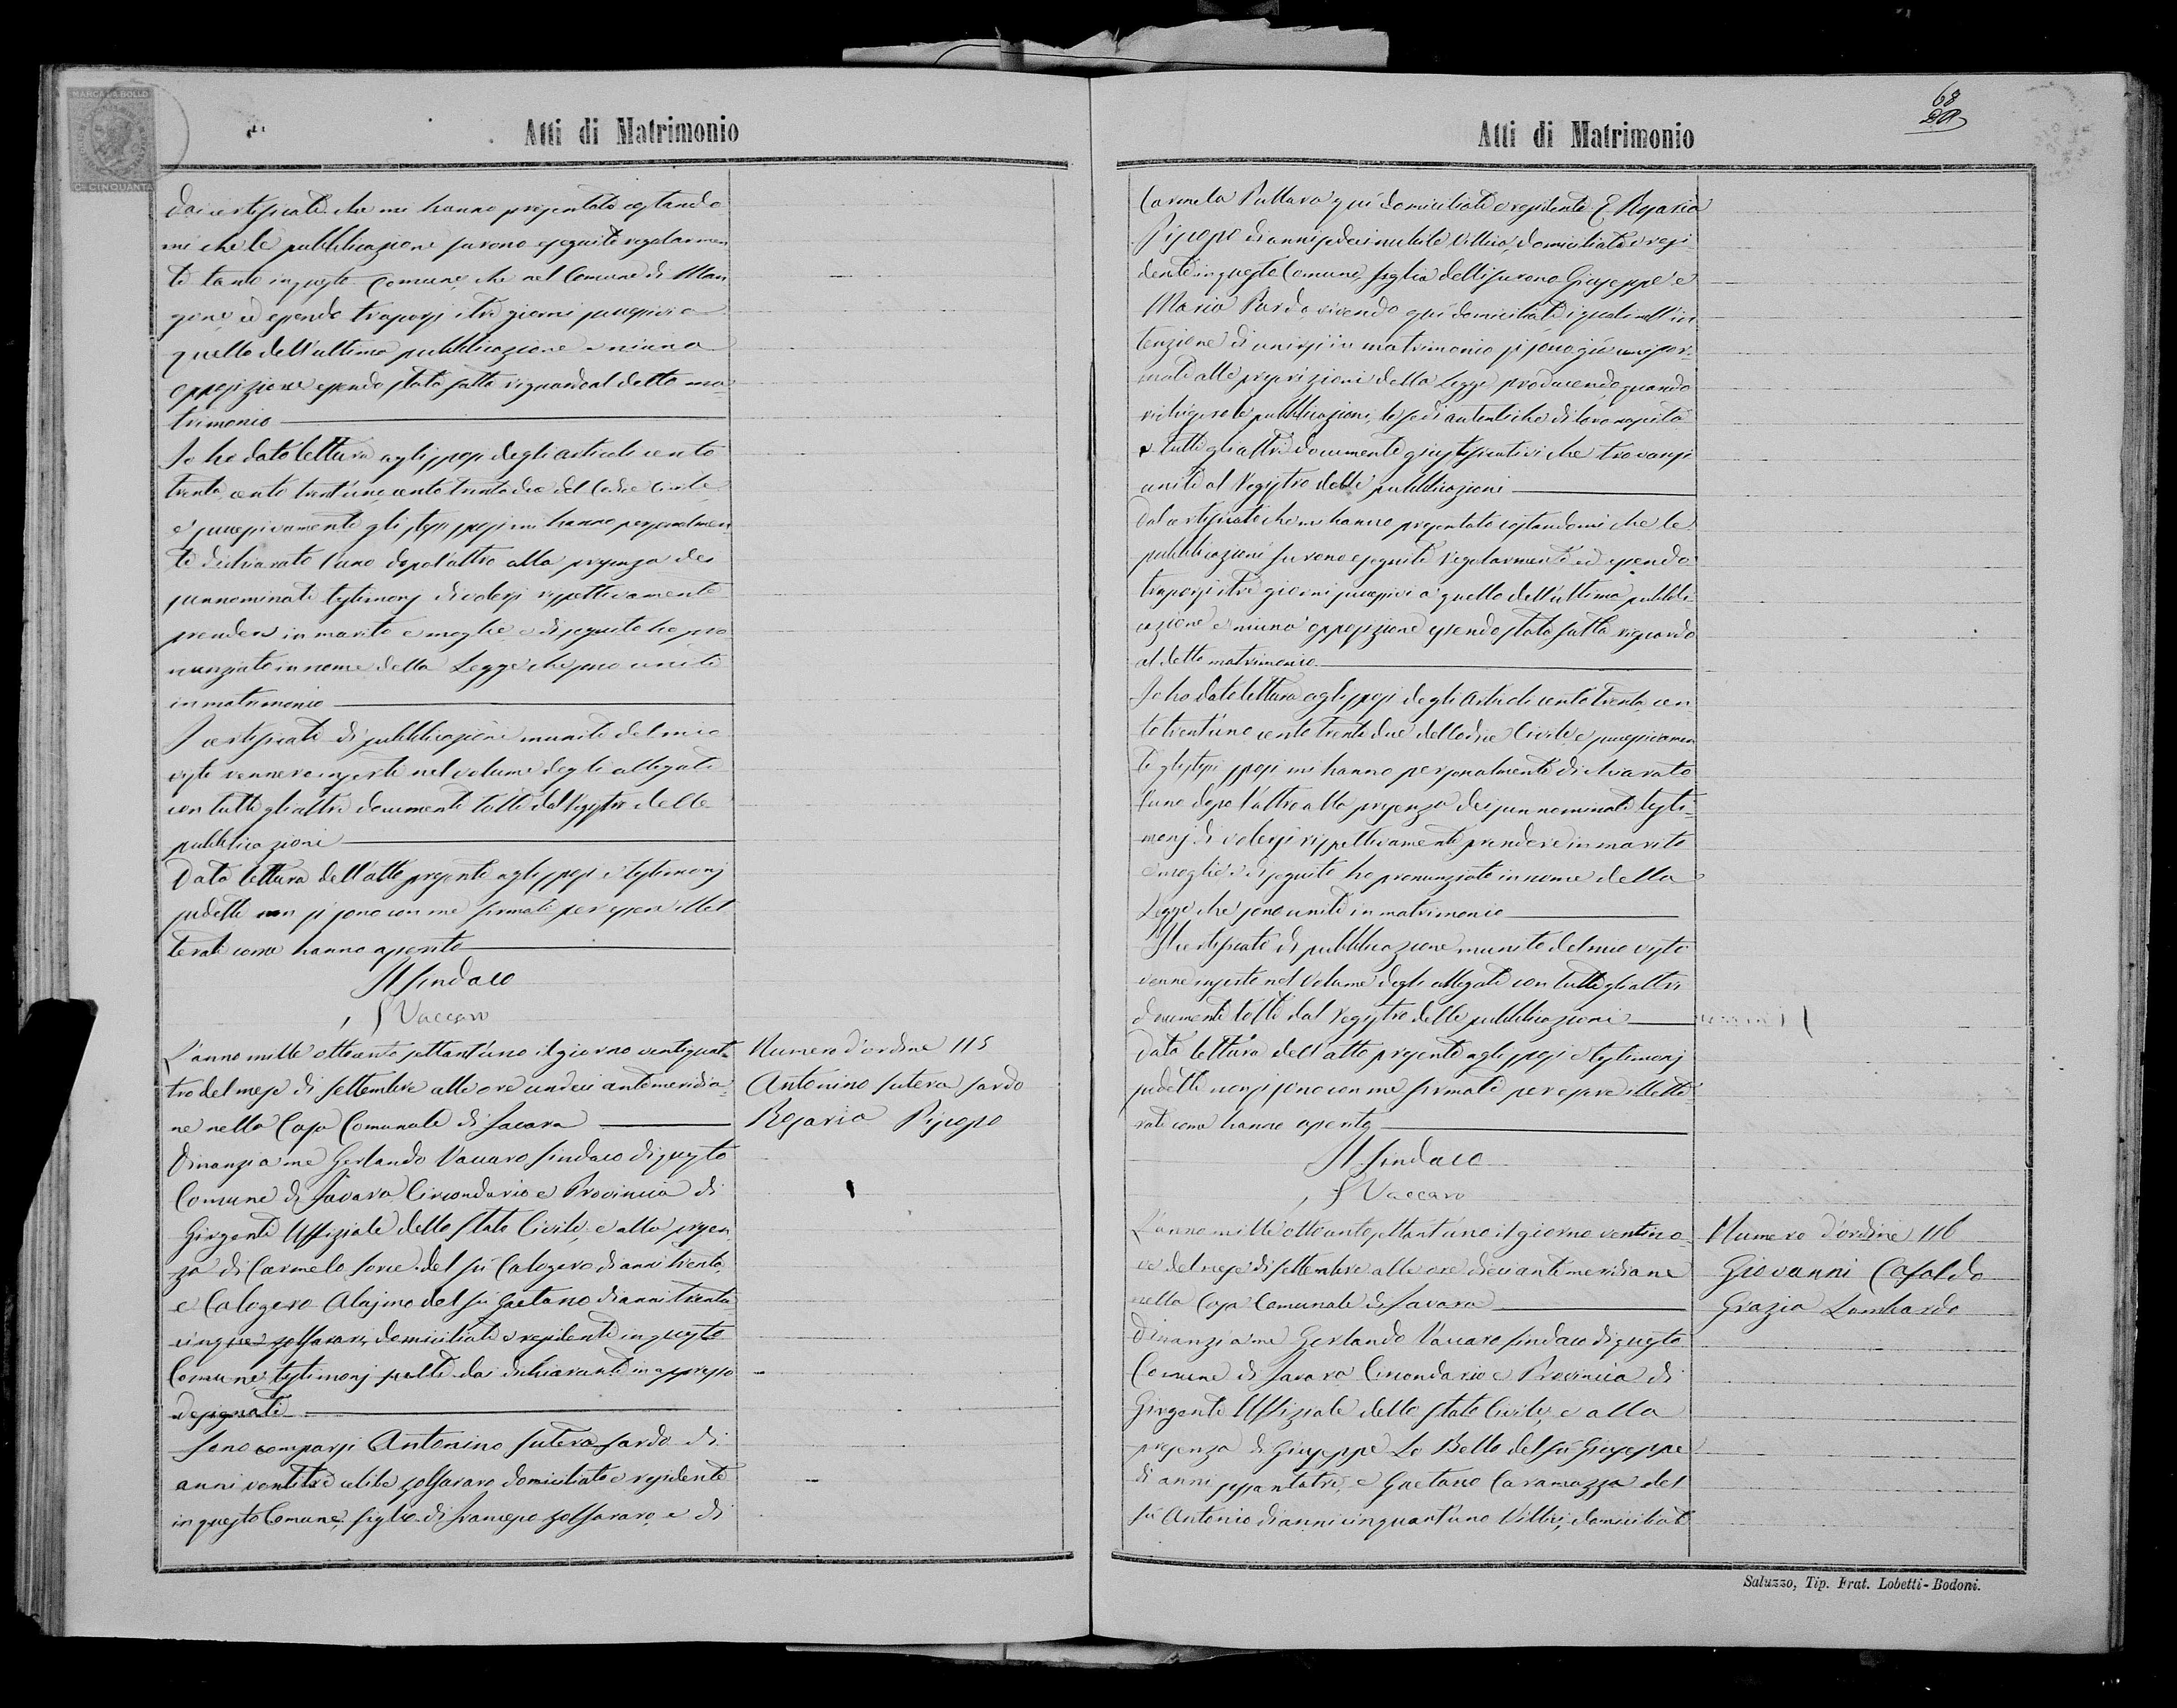 MARCA DA BOLLO
CINQUANTA
Atti di Matrimonio
dai certificati che mi hanno presentato costando
mi che le pubblicazioni furono eseguite regolarmen
te tanto in questo Comune che nel Comune di
ed essendo trascorsi i tre giorni successivi a
quello dell'ultima pubblicazione e niuna
opposizione essendo stata fatta riguardo al detto ma
trimonio
Io ho dato lettura agli sposi degli articoli cento
trenta, cento trent'uno cento trentadue del Codice Civile
e successivamente gli stessi sposi mi hanno personalmen
te dichiarato l'uno dopo l'altro alla presenza dei
sunnominati testimonj di volersi rispettivamente
prendere in marito e moglie e di seguito ho pro
nunziato in nome della Legge che sono uniti
in matrimonio
I certificati di pubblicazione muniti del mio
visto vennero inserti nel volume degli allegati
con tutti gli altri documenti tolti dal Registro delle
pubblicazioni
Data lettura dell'atto presente agli sposi e testimonj
sudetti non si sono con me firmati per essere illet
terati come hanno asserito
Il Sindaco
Vaccaro
L'anno mille ottocento settant'uno il giorno ventiquat
tro del mese di Settembre alle ore undici antemeridia
ne nella Casa Comunale di Favara
Numero d'ordine 115
Antonino Sutera Sardo
Rosaria Piscopo
Dinanzi a me Gerlando Vaccaro Sindaco di questo
Comune di Favara Circondario e Provincia di
Girgenti Uffiziale dello Stato Civile, e alla presen
za di Carmelo Sorce del fù Calogero di anni trenta,
e Calogero Alajmo del fù Gaetano di anni trenta
cinque zolfarari, domiciliati e residenti in questo
Comune testimonj scelti dai dichiaranti in appresso
designati
Sono comparsi Antonino Sutera Sardo di
anni ventitre celibe zolfararo domiciliato e residente
in questo Comune, figlio di Francesco zolfararo, e di
Atti di Matrimonio
68
Carmela Pullara qui domiciliati e residenti E Rosaria
Piscopo di anni sedici nubile, Villica, domiciliata e resi
dente in questo Comune, figlia delli furono Giuseppe e
Maria Pardo vivendo qui domiciliati i quali nell'in
tenzione di unirsi in matrimonio si sono già unifor
mati alle prescrizioni della Legge producendo, quando
richiesero le pubblicazioni, le fedi autentiche di loro nascita
e tutti gli altri documenti giustificativi che trovansi
uniti al Registro delle pubblicazioni
Dal certificato che mi hanno presentato costandomi che le
pubblicazioni furono eseguite regolarmente ed essendo
trascorsi i tre giorni successivi a quello dell'ultima pubbli
cazione e niuna opposizione essendo stata fatta riguardo
al detto matrimonio
Io ho dato lettura agli sposi degli Articoli cento trenta, cen
to trent'uno cento trenta due del Codice Civile e successivamen
te gli stessi sposi mi hanno personalmente dichiarato
l'uno dopo l'altro alla presenza dei sunnominati testi
monj di volersi rispettivamente prendere in marito
e moglie e di seguito ho pronunziato in nome della
Legge che sono uniti in matrimonio
Il certificato di pubblicazione munito del mio visto
venne inserto nel Volume degli allegati con tutti gli altri
documenti tolti dal Registro delle pubblicazioni
Data lettura dell'atto presente agli sposi e testimonj
sudetti non si sono con me firmati per essere illette
rati come hanno asserito
Il Sindaco
Vaccaro
L'anno mille ottocento settant'uno il giorno ventino
ve del mese di Settembre alle ore dieci antimeridiane
nella Casa Comunale di Favara
Numero d'ordine 116
Giovanni Casaldo
Grazia Lombardo
Dinanzi a me Gerlando Vaccaro Sindaco di questo
Comune di Favara Circondario e Provincia di
Girgenti Uffiziale dello Stato Civile, e alla
presenza di Giuseppe Lo Bello del fù Giuseppe
di anni sessantatre, e Gaetano Caramazza del
fù Antonio di anni cinquant'uno Villici, domiciliati
Saluzzo, Tip. Frat. Lobetti-Bodoni.